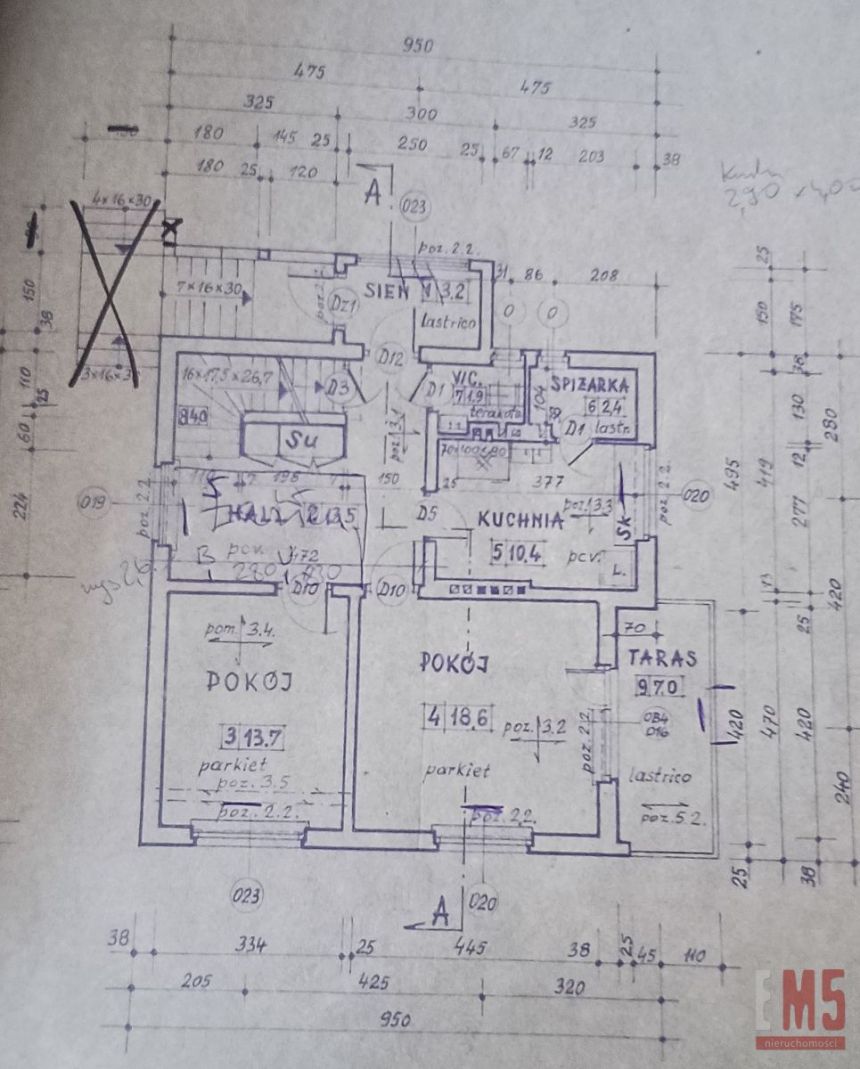 950
475
475
325
300
325
180
145
25
250
25
67
12
203
38
180
25
120
A
023
4×16×30
poz. 2.2.
31
86
208
7×16×30
SIEŃ
1 3.2
Dz1
lastrico
0
0
25
150
175
38
150
38
110
25
60
224
D12
16×17,5×26,7
D3
D1
W.C.
7 1.9
terakota
104
SPIŻARKA
6 2.4
D1
lastr.
8 4.0
Su
130
280
12
419
495
277
70
100
90
25
377
150
019
poz 2.2.
HALL
2 13.5
D5
KUCHNIA
poz. 3.3
Sk
poz. 2.2.
020
5 10.4
pcv.
L.
pcv.
472
280
D10
D10
25
420
pom. 3.4.
POKÓJ
3 13.7
parkiet
poz. 3.5
poz. 2.2.
POKÓJ
4 18.6
poz. 3.2
parkiet
poz. 2.2.
poz. 2.2.
70
TARAS
9 7.0
OB4
D16
lastrico
poz 5.2.
420
470
420
240
25
38
023
A
020
38
334
25
445
38
25
45
110
205
425
320
950
EM5
nieruchomości